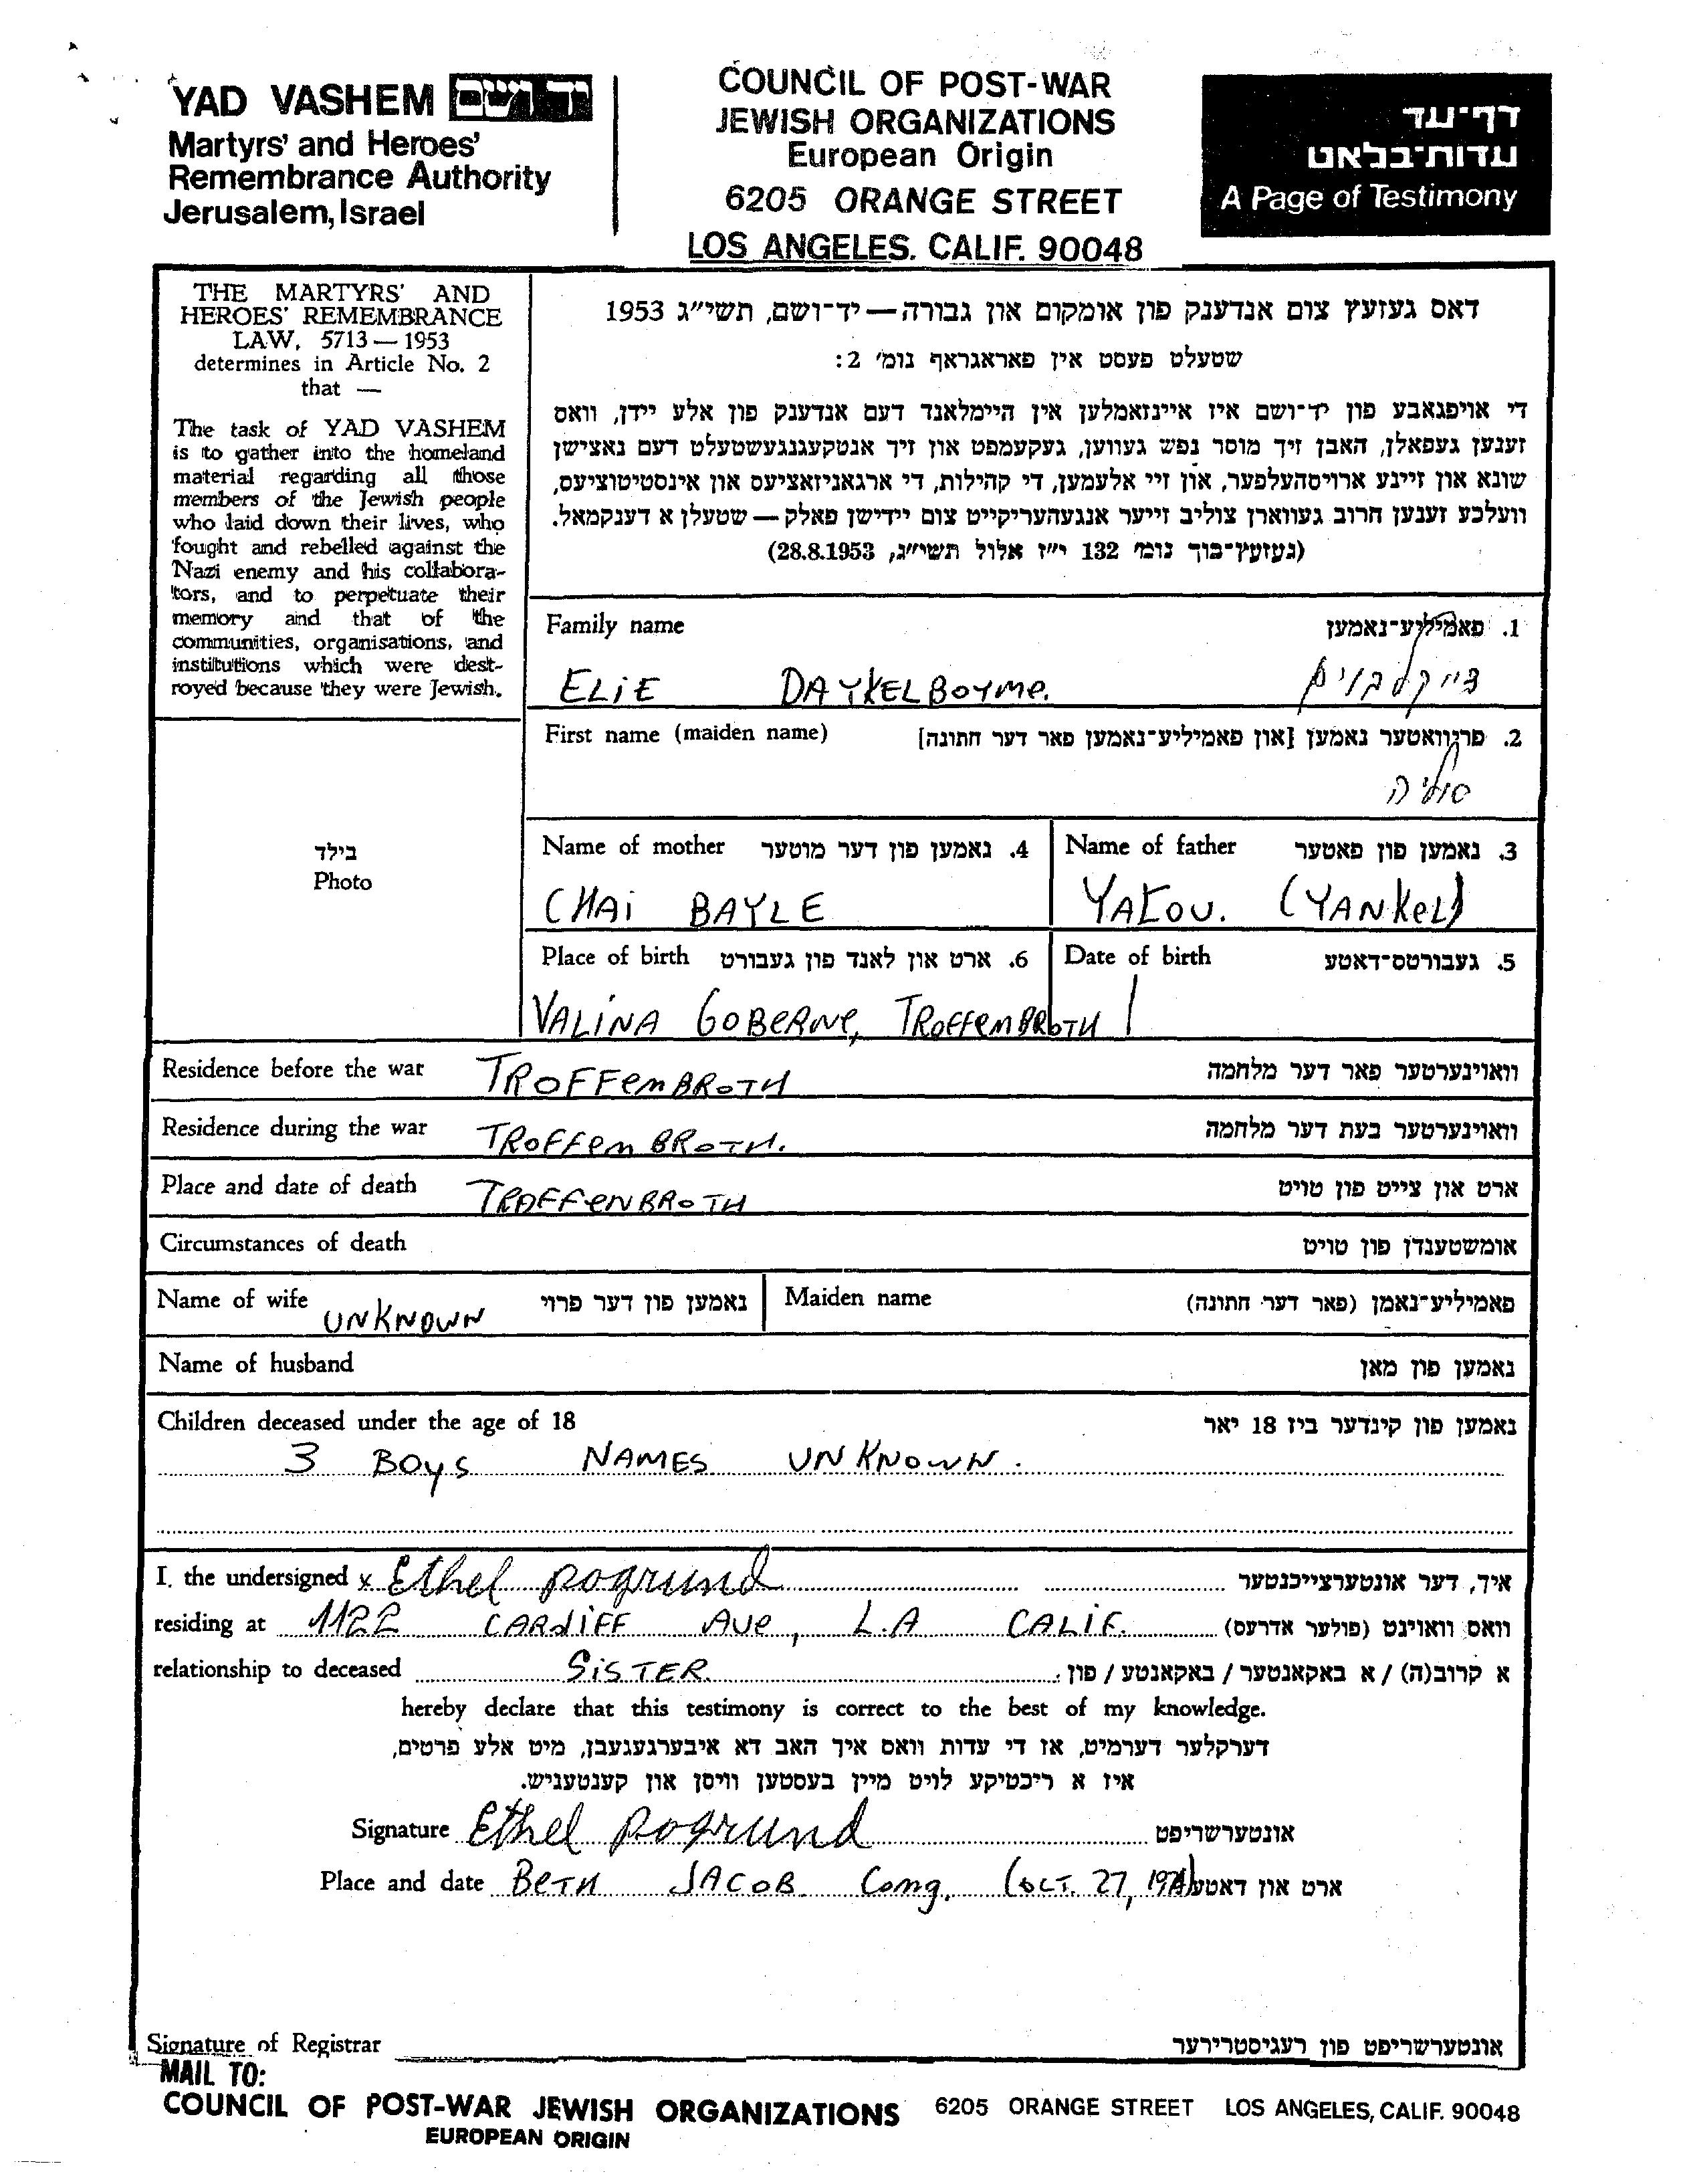 YAD VASHEM יד ושם
Martyrs' and Heroes'
Remembrance Authority
Jerusalem, Israel
COUNCIL OF POST-WAR
JEWISH ORGANIZATIONS
European Origin
6205 ORANGE STREET
LOS ANGELES. CALIF. 90048
דף-עד
עדות-בלאט
A Page of Testimony
THE MARTYRS' AND
HEROES' REMEMBRANCE
LAW, 5713 — 1953
determines in Article No. 2
that —
The task of YAD VASHEM
is to gather into the homeland
material regarding all those
members of the Jewish people
who laid down their lives, who
fought and rebelled against the
Nazi enemy and his collabora-
tors, and to perpetuate their
memory and that of the
communities, organisations, and
institutions which were dest-
royed because they were Jewish.
דאס געזעץ צום אנדענק פון אומקום און גבורה — יד-ושם, תשי"ג 1953
שטעלט פעסט אין פאראגראף נומ' 2:
די אויפגאבע פון יד-ושם איז איינזאמלען אין היימלאנד דעם אנדענק פון אלע יידן, וואס
זענען געפאלן, האבן זיך מוסר נפש געווען, געקעמפט און זיך אנטקעגנגעשטעלט דעם נאצישן
שונא און זיינע ארויסהעלפער, און זיי אלעמען, די קהילות, די ארגאניזאציעס און אינסטיטוציעס,
וועלכע זענען חרוב געווארן צוליב זייער אנגעהעריקייט צום יידישן פאלק — שטעלן א דענקמאל.
(געזעץ-בוך נומ' 132 י"ז אלול תשי"ג, 28.8.1953)
Family name 1. פאמיליע-נאמען
ELIE DAYKELBOYME. דייקלבוים
First name (maiden name) 2. פריוואטער נאמען [און פאמיליע-נאמען פאר דער חתונה]
בילד
Photo
Name of mother 4. נאמען פון דער מוטער Name of father 3. נאמען פון פאטער
CHAI BAYLE YAKOV. (YANKEL)
Place of birth 6. ארט און לאנד פון געבורט Date of birth 5. געבורטס-דאטע
VALINA GOBERNE, TROFFEMBROTH
Residence before the war TROFFEMBROTH וואוינערטער פאר דער מלחמה
Residence during the war TROFFEMBROTH. וואוינערטער בעת דער מלחמה
Place and date of death TROFFENBROTH ארט און צייט פון טויט
Circumstances of death אומשטענדן פון טויט
Name of wife UNKNOWN נאמען פון דער פרוי Maiden name פאמיליע-נאמן (פאר דער חתונה)
Name of husband נאמען פון מאן
Children deceased under the age of 18 נאמען פון קינדער ביז 18 יאר
3 BOYS NAMES UNKNOWN.
I, the undersigned x Ethel Pogrund איך, דער אונטערצייכנטער
residing at 1122 CARDIFF AVE, L.A CALIF. וואס וואוינט (פולער אדרעס)
relationship to deceased SISTER א קרוב(ה) / א באקאנטער / באקאנטע / פון:
hereby declare that this testimony is correct to the best of my knowledge.
דערקלער דערמיט, אז די עדות וואס איך האב דא איבערגעגעבן, מיט אלע פרטים,
איז א ריכטיקע לויט מיין בעסטען וויסן און קענטעניש.
Signature Ethel Pogrund אונטערשריפט
Place and date BETH JACOB Cong. (OCT. 27, ארט און דאטע
Signature of Registrar אונטערשריפט פון רעגיסטרירער
MAIL TO:
COUNCIL OF POST-WAR JEWISH ORGANIZATIONS 6205 ORANGE STREET LOS ANGELES, CALIF. 90048
EUROPEAN ORIGIN